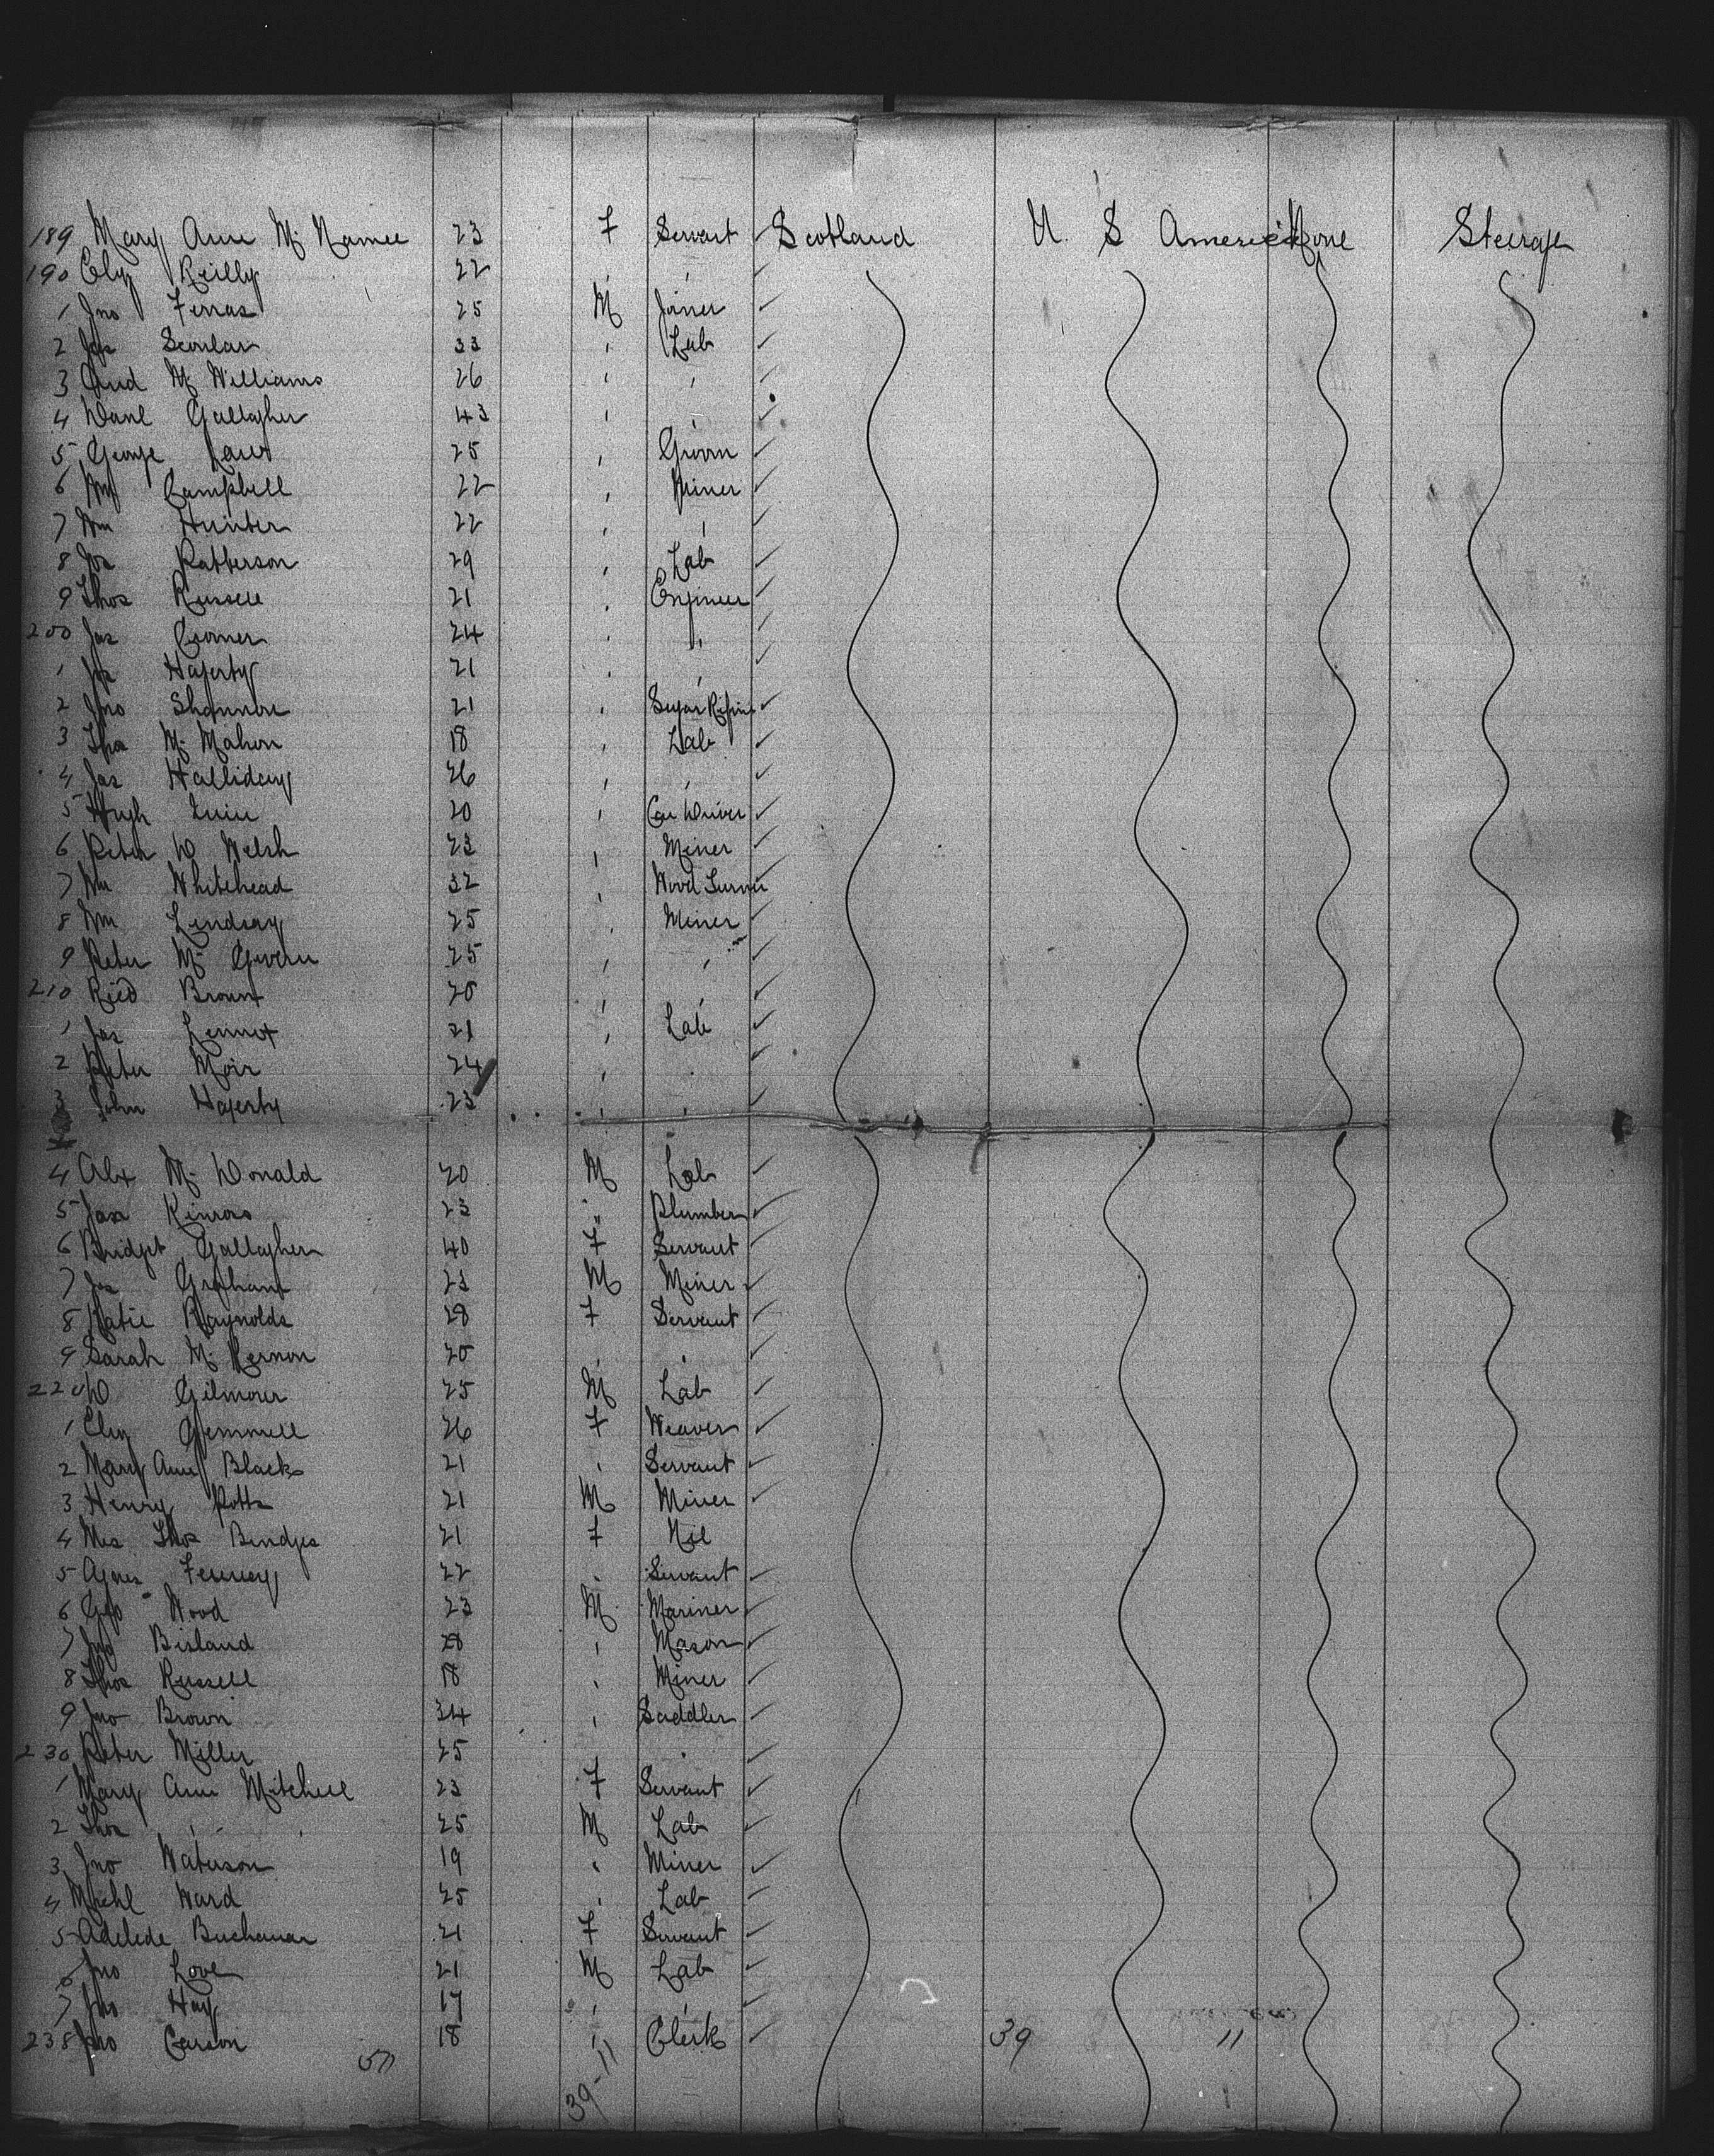 189 Mary Ann Mc Namee 23 F Servant Scotland U. S America None Steerage
190 Eliz Reilly 22 " "
1 Jno Ferras 25 M Joiner
2 Jas Scanlan 33 " Lab
3 And Mc Williams 26 " "
4 Danl Gallagher 43 " "
5 George 25 " Groom
6 Wm Campbell 22 " Miner
7 Wm Hunter 22 " "
8 Jos Patterson 29 " Lab
9 Thos Russell 21 " Engineer
200 Jas Cromer 24 " "
1 Jas Hagerty 21 " "
2 Jno Shannon 21 " Sugar Refiner
3 Thos Mc Mahon 18 " Lab
4 Jas Halliday 26 " "
5 Hugh Quin 20 " Car Driver
6 Peter D Welsh 23 " Miner
7 Wm Whitehead 32 " Wood Turner
8 Wm Lindsay 25 " Miner
9 Peter Mc Govern 25 " "
210 Brown 20 " "
1 Jas Lennox 21 " Lab
2 Peter Moir 24 " "
3 John Hagerty 23 " "
4 Alex Mc Donald 20 M Lab
5 Jas Kinross 23 " Plumber
6 Bridget Gallagher 40 F Servant
7 Jas Graham 23 M Miner
8 Katie Raynolds 28 F Servant
9 Sarah Mc Kernon 20 " "
220 D Gilmour 25 M Lab
1 Eliz Gemmell 26 F Weaver
2 Mary Ann Black 21 " Servant
3 Henry Potts 21 M Miner
4 Mrs Thos Bendges 21 F Nil
5 Agnes Feeney 22 " Servant
6 Geo Wood 23 M Mariner
7 Jno Bisland 28 " Mason
8 Thos Russell 18 " Miner
9 Jno Brown 34 " Saddler
230 Peter Miller 25 " "
1 Mary Ann Mitchell 23 F Servant
2 Thos " 25 M Lab
3 Jno Waterson 19 " Miner
4 Michl Ward 25 " Lab
5 Adelede Buchanan 21 F Servant
6 Jno Love 21 M Lab
7 Jno Hay 17 " "
238 Jno Carson 18 " Clerk 39 11
39-11